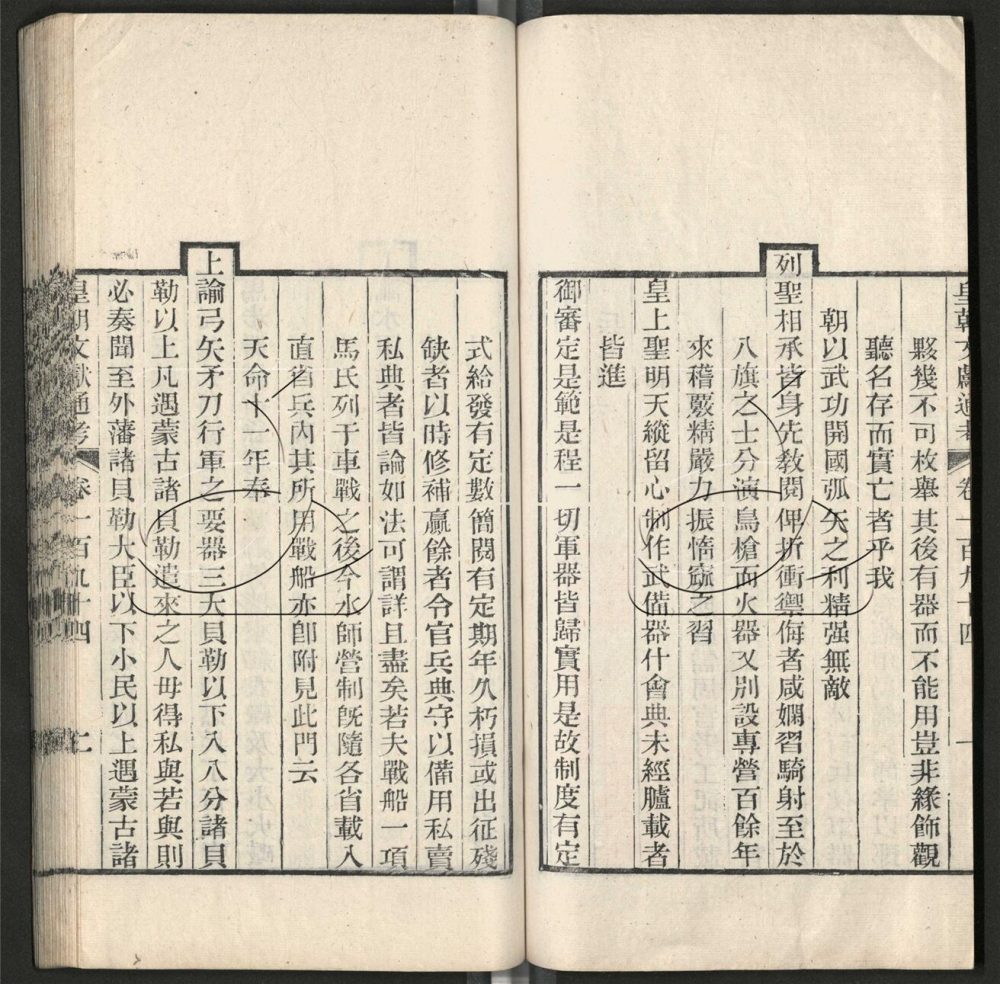 皇朝文獻通考 卷一百九十四 一
夥幾不可枚舉其後有器而不能用豈非緣飾觀
聽名存而實亡者乎我
朝以武功開國弧矢之利精强無敵
列聖相承皆身先敎閱俾折衝禦侮者咸嫻習騎射至於
八旗之士分演鳥槍而火器又別設專營百餘年
來稽覈精嚴力振惰窳之習
皇上聖明天縱留心制作武備器什會典未經臚載者
皆進
御審定是範是程一切軍器皆歸實用是故制度有定
式給發有定數簡閱有定期年久朽損或出征殘
缺者以時修補贏餘者令官兵典守以備用私賣
私典者皆論如法可謂詳且盡矣若夫戰船一項
馬氏列于車戰之後今水師營制旣隨各省載入
直省兵內其所用戰船亦卽附見此門云
天命十一年奉
上諭弓矢矛刀行軍之要器三大貝勒以下入八分諸貝
勒以上凡遇蒙古諸貝勒遣來之人毋得私與若與則
必奏聞至外藩諸貝勒大臣以下小民以上遇蒙古諸
皇朝文獻通考 卷一百九十四 二